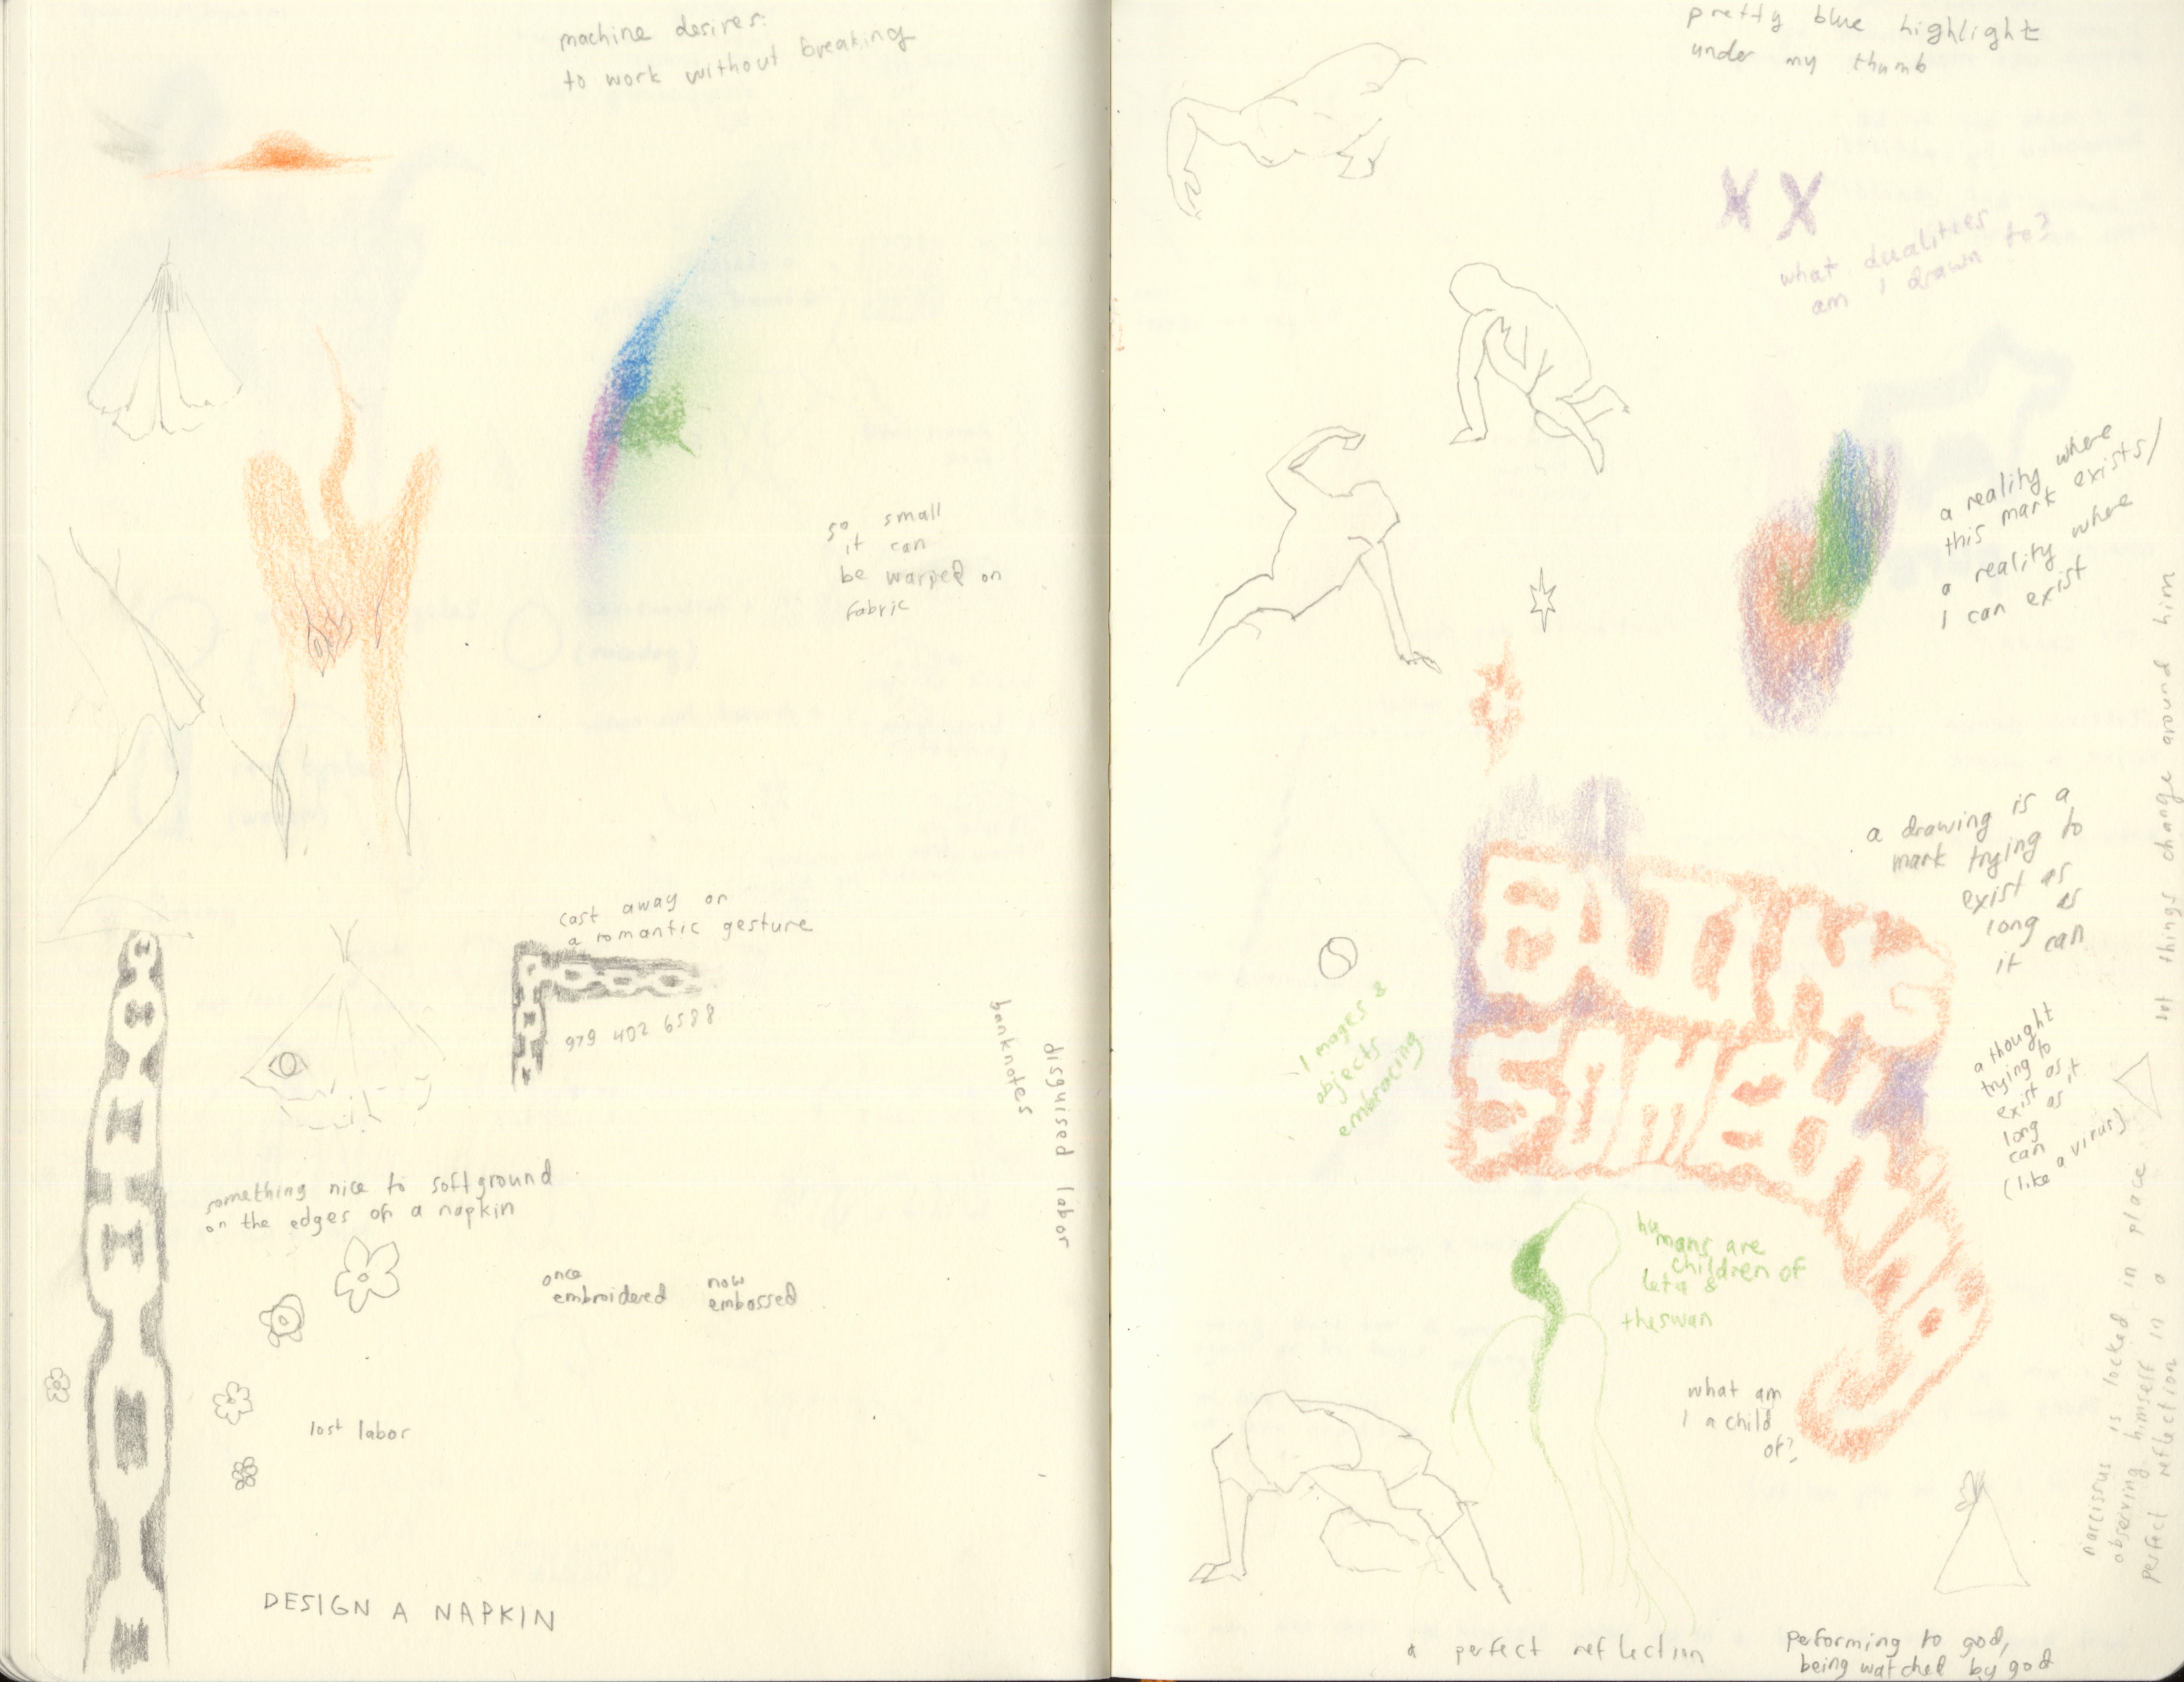 machine desires:
to work without breaking
so small
it can
be warped on
fabric
cast away or
a romantic gesture
979 402 6588
banknotes
disguised labor
something nice to softground
on the edges of a napkin
once
embroidered
now
embossed
lost labor
DESIGN A NAPKIN
pretty blue highlight
under my thumb
XX
what dualities
am I drawn to?
a reality where
this mark exists/
a reality where
I can exist
a drawing is a
mark trying to
exist as
long as
it can
images &
objects
embracing
a thought
trying to
exist as it
as
long
can
(like a virus)
humans are
children of
leta &
the swan
what am
I a child
of?
narcissus is locked in place
observing himself in a
perfect reflection
let things change around him
a perfect reflection
performing to god,
being watched by god